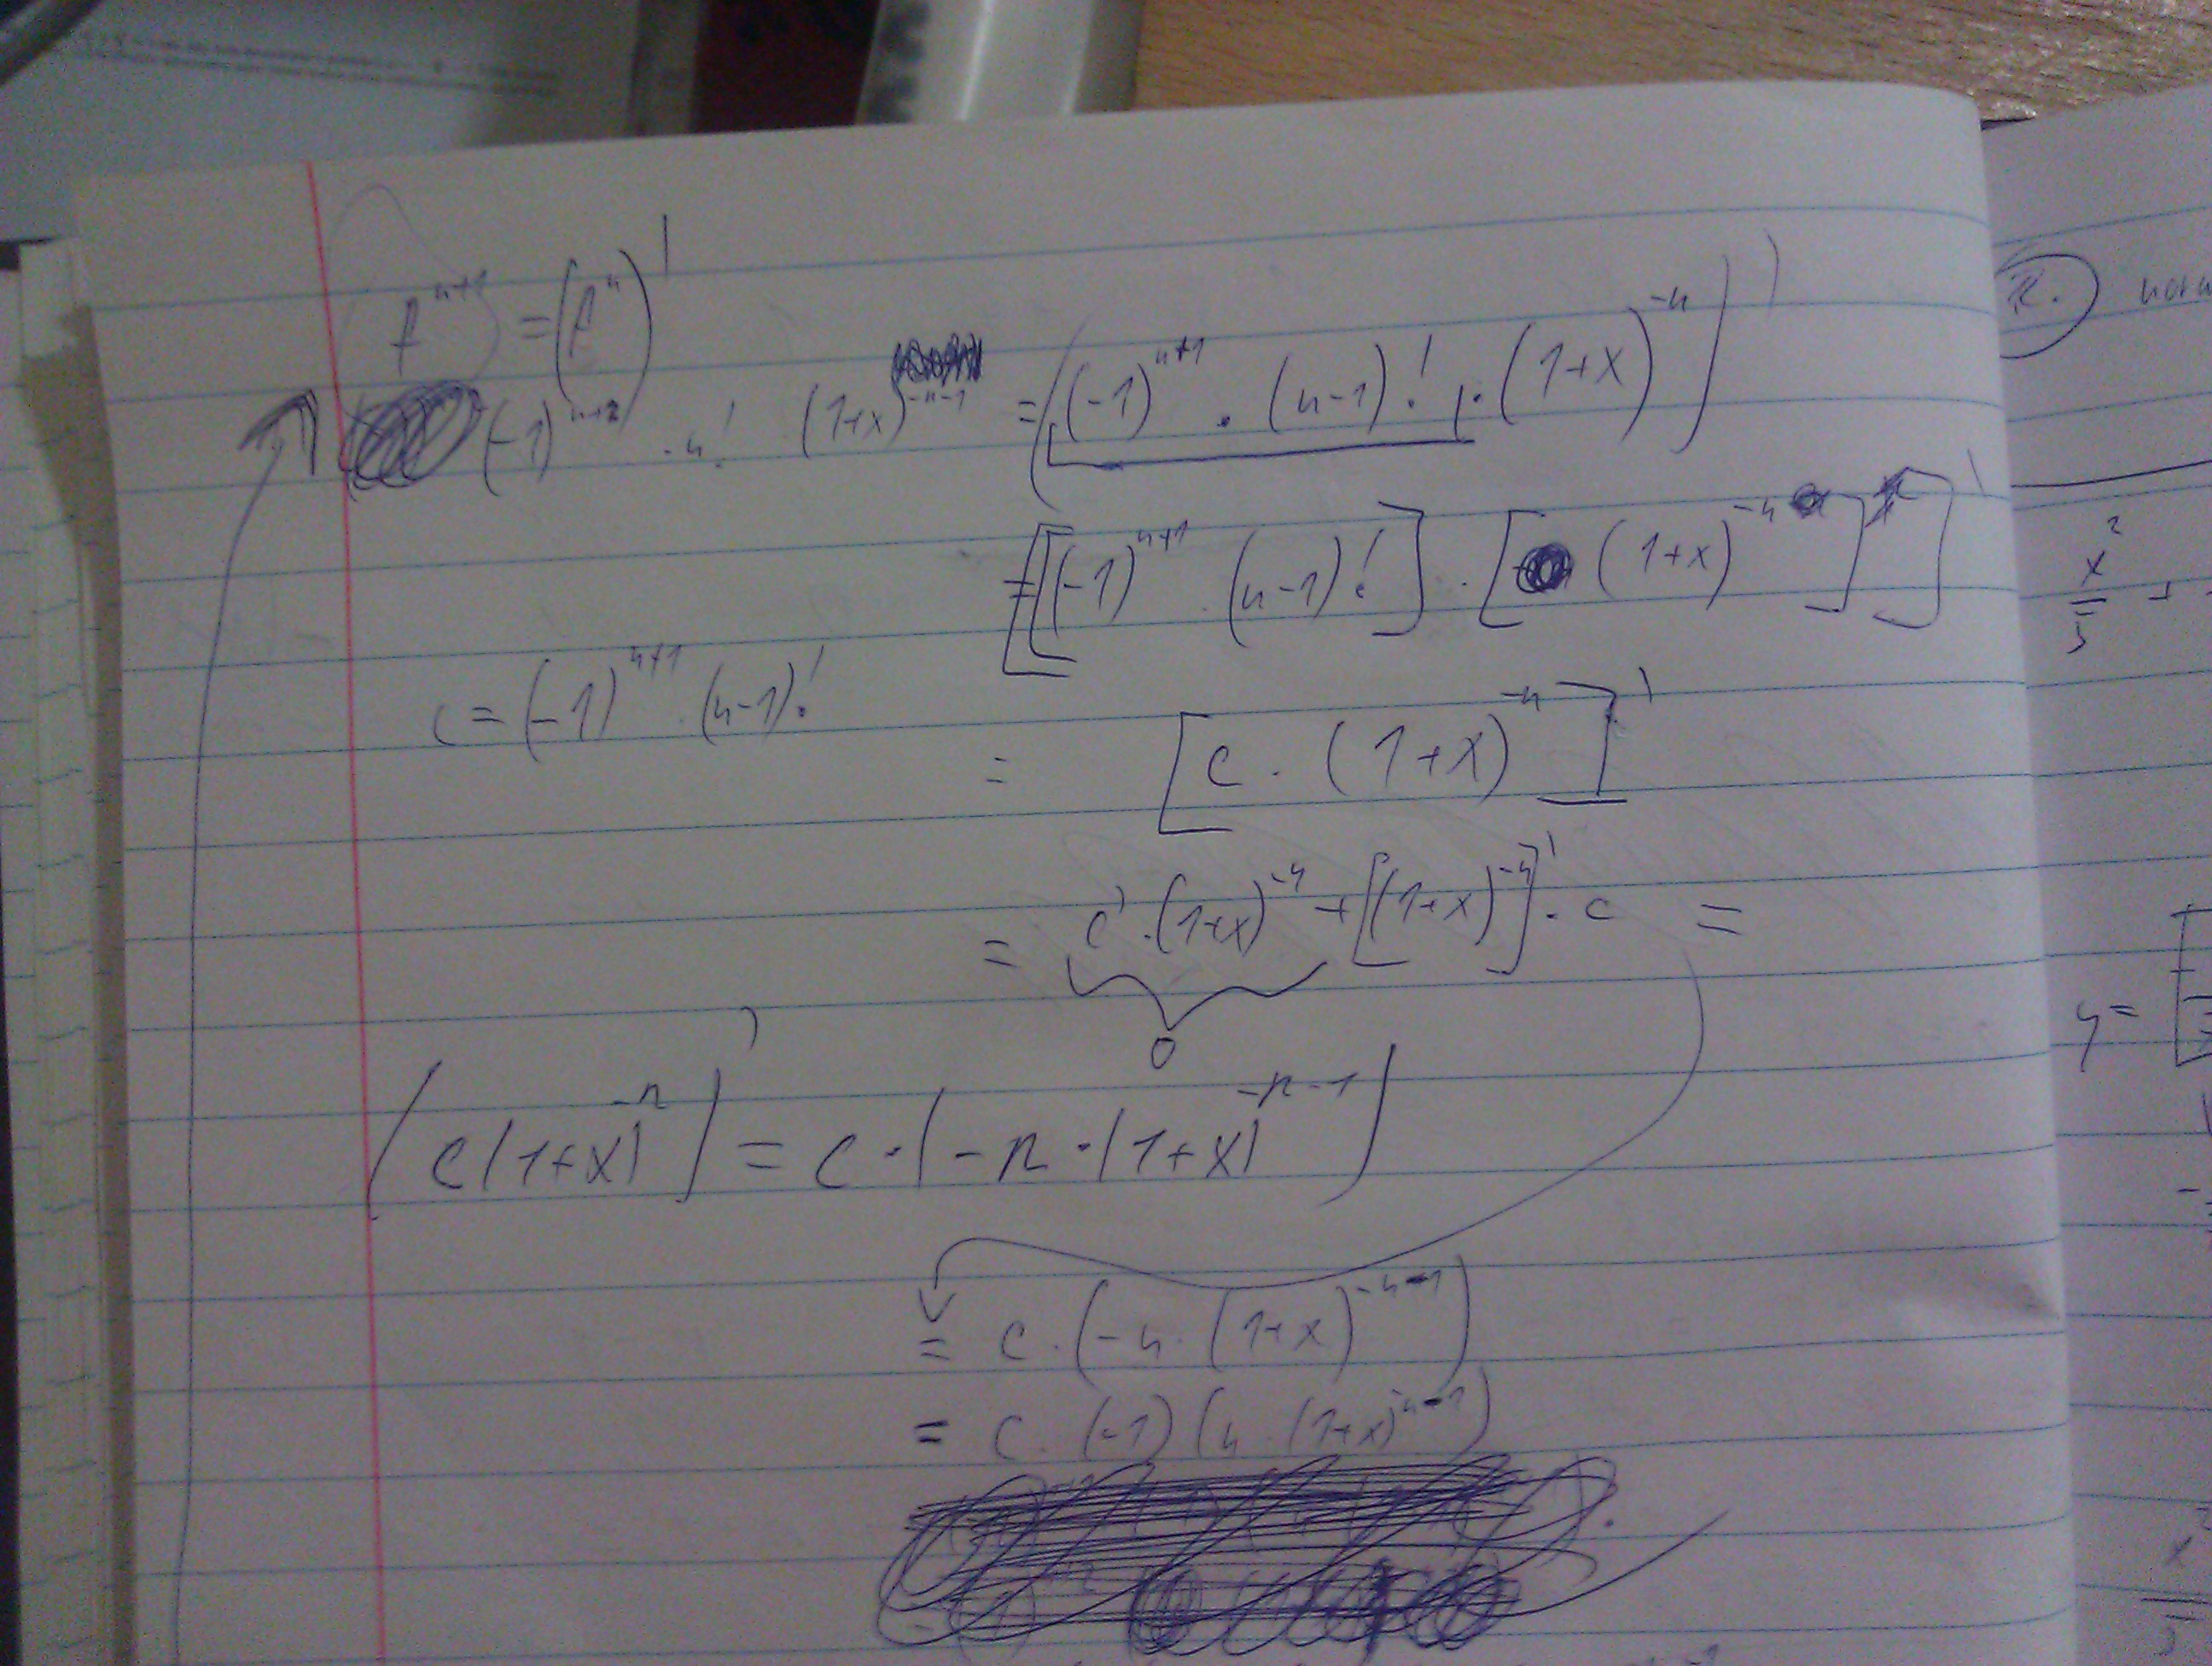 f^{n+1} = (f^n)'
(-1)^{n+2} · n! · (1+x)^{-n-1} = ((-1)^{n+1} · (n-1)! · (1+x)^{-n})'
= [[(-1)^{n+1} · (n-1)!] · [(1+x)^{-n}]]'
c = (-1)^{n+1} · (n-1)!
= [c · (1+x)^{-n}]'
= c' · (1+x)^{-n} + [(1+x)^{-n}]' · c =
0
(c(1+x)^{-n})' = c · (-n · (1+x)^{-n-1})
= c · (-n · (1+x)^{-n-1})
= c · (-1) (n · (1+x)^{-n-1})
R.
x^2/5 +
y = [